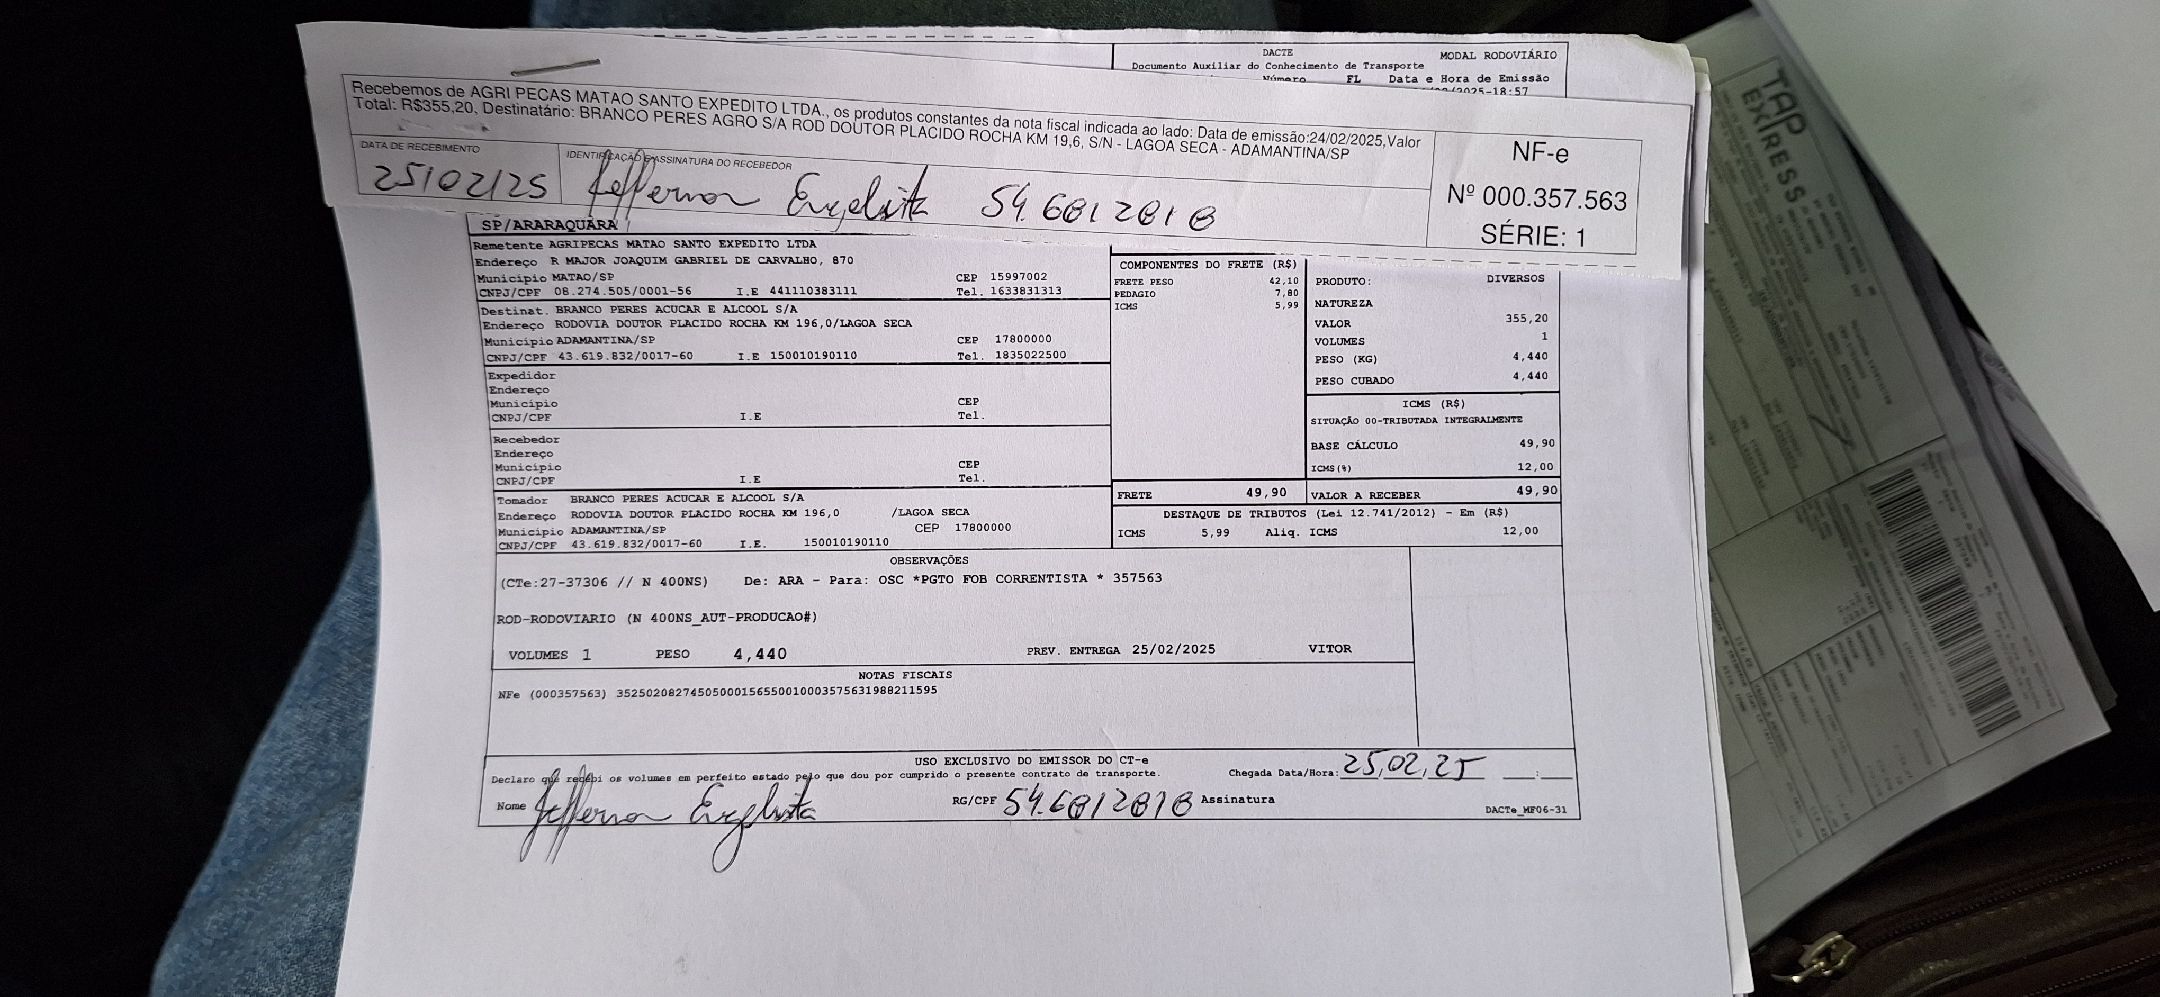 DACTE
MODAL RODOVIÁRIO
Documento Auxiliar do Conhecimento de Transporte
Número FL Data e Hora de Emissão
2025-18:57
Recebemos de AGRI PECAS MATAO SANTO EXPEDITO LTDA., os produtos constantes da nota fiscal indicada ao lado: Data de emissão:24/02/2025,Valor
Total: R$355,20, Destinatário: BRANCO PERES AGRO S/A ROD DOUTOR PLACIDO ROCHA KM 19,6, S/N - LAGOA SECA - ADAMANTINA/SP
DATA DE RECEBIMENTO
IDENTIFICAÇÃO E ASSINATURA DO RECEBEDOR
25/02/25 Jefferson 54.6812818
NF-e
Nº 000.357.563
SÉRIE: 1
SP/ARARAQUARA
Remetente AGRIPECAS MATAO SANTO EXPEDITO LTDA
Endereço R MAJOR JOAQUIM GABRIEL DE CARVALHO, 870
Município MATAO/SP CEP 15997002
CNPJ/CPF 08.274.505/0001-56 I.E 441110383111 Tel. 1633831313
Destinat. BRANCO PERES ACUCAR E ALCOOL S/A
Endereço RODOVIA DOUTOR PLACIDO ROCHA KM 196,0/LAGOA SECA
Município ADAMANTINA/SP CEP 17800000
CNPJ/CPF 43.619.832/0017-60 I.E 150010190110 Tel. 1835022500
Expedidor
Endereço
Município CEP
CNPJ/CPF I.E Tel.
Recebedor
Endereço
Município CEP
CNPJ/CPF I.E Tel.
Tomador BRANCO PERES ACUCAR E ALCOOL S/A
Endereço RODOVIA DOUTOR PLACIDO ROCHA KM 196,0 /LAGOA SECA
Município ADAMANTINA/SP CEP 17800000
CNPJ/CPF 43.619.832/0017-60 I.E. 150010190110
COMPONENTES DO FRETE (R$)
FRETE PESO 42,10
PEDAGIO 7,80
ICMS 5,99
FRETE 49,90
PRODUTO: DIVERSOS
NATUREZA
VALOR 355,20
VOLUMES 1
PESO (KG) 4,440
PESO CUBADO 4,440
ICMS (R$)
SITUAÇÃO 00-TRIBUTADA INTEGRALMENTE
BASE CÁLCULO 49,90
ICMS(%) 12,00
VALOR A RECEBER 49,90
DESTAQUE DE TRIBUTOS (Lei 12.741/2012) - Em (R$)
ICMS 5,99 Aliq. ICMS 12,00
OBSERVAÇÕES
(CTe:27-37306 // N 400NS) De: ARA - Para: OSC *PGTO FOB CORRENTISTA * 357563
ROD-RODOVIARIO (N 400NS_AUT-PRODUCAO#)
VOLUMES 1 PESO 4,440 PREV. ENTREGA 25/02/2025 VITOR
NOTAS FISCAIS
NFe (000357563) 35250208274505000156550010003575631988211595
USO EXCLUSIVO DO EMISSOR DO CT-e
Declaro que recebi os volumes em perfeito estado pelo que dou por cumprido o presente contrato de transporte. Chegada Data/Hora: 25,02,25 __:__
Nome Jefferson RG/CPF 54.6812818 Assinatura
DACTe_MF06-31
TAP
EXPRESS